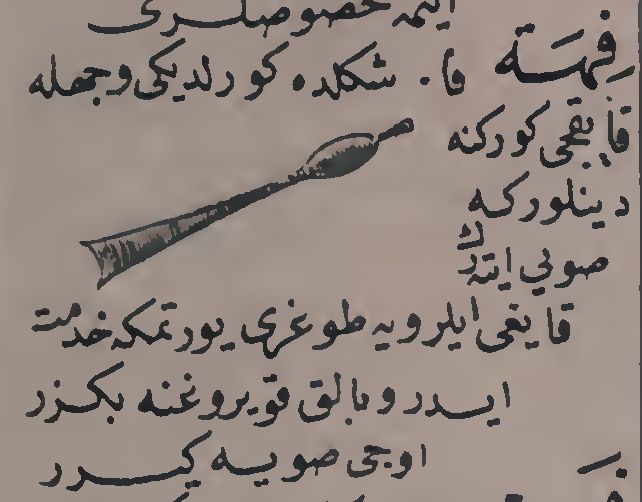 ايتمه خصوصلری
فهته فا. شكلده كورلديكی وجهله
قايقجی كوركنه
دينلوركه
صويی ايتهرك
قايغی ايلرويه طوغری يورتمكه خدمت
ايدر و بالق قويروغنه بكزر
اوجی صويه كيرر